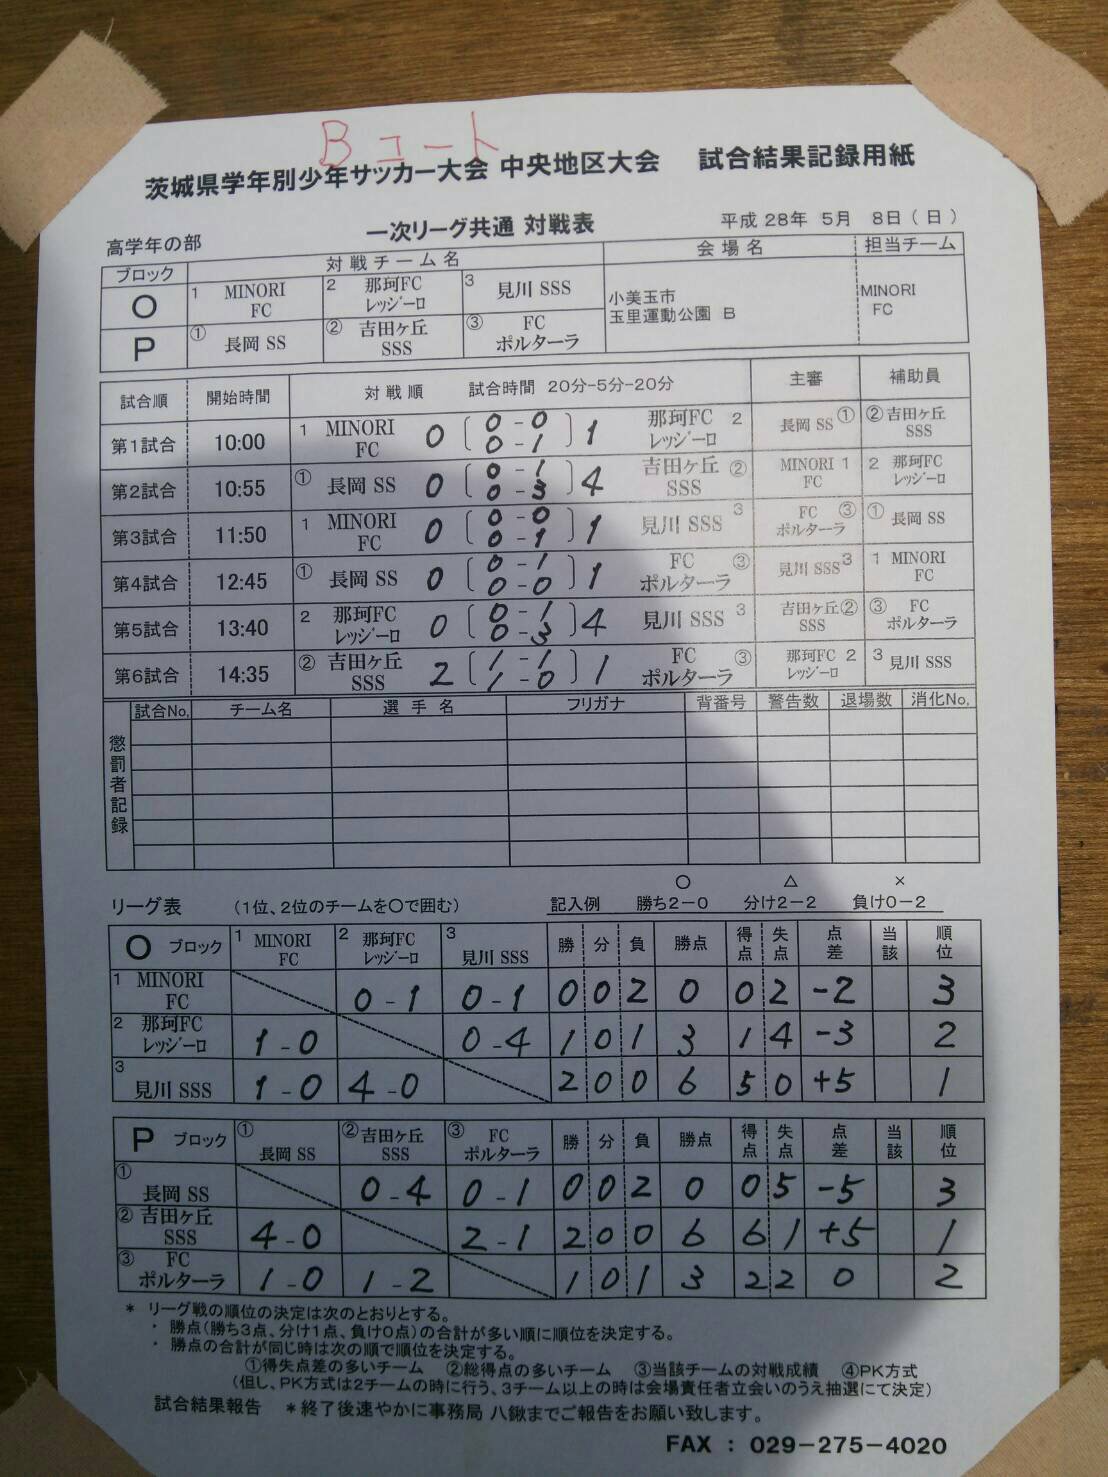 Bコート
茨城県学年別少年サッカー大会 中央地区大会 試合結果記録用紙
一次リーグ共通 対戦表 平成28年 5月 8日(日)
高学年の部
ブロック 対戦チーム名 会場名 担当チーム
O 1 MINORI FC 2 那珂FC レッジーロ 3 見川 SSS 小美玉市 玉里運動公園 B MINORI FC
P ① 長岡 SS ② 吉田ヶ丘 SSS ③ FC ポルターラ
試合順 開始時間 対戦順 試合時間 20分-5分-20分 主審 補助員
第1試合 10:00 1 MINORI FC 0 [0-0 0-1] 1 那珂FC レッジーロ 2 長岡 SS ① ② 吉田ヶ丘 SSS
第2試合 10:55 ① 長岡 SS 0 [0-1 0-3] 4 吉田ヶ丘 SSS ② MINORI FC 1 2 那珂FC レッジーロ
第3試合 11:50 1 MINORI FC 0 [0-0 0-1] 1 見川 SSS 3 FC ポルターラ ③ ① 長岡 SS
第4試合 12:45 ① 長岡 SS 0 [0-1 0-0] 1 FC ポルターラ ③ 見川 SSS 3 1 MINORI FC
第5試合 13:40 2 那珂FC レッジーロ 0 [0-1 0-3] 4 見川 SSS 3 吉田ヶ丘 SSS ② ③ FC ポルターラ
第6試合 14:35 ② 吉田ヶ丘 SSS 2 [1-1 1-0] 1 FC ポルターラ ③ 那珂FC レッジーロ 2 3 見川 SSS
懲罰者記録 試合No, チーム名 選手名 フリガナ 背番号 警告数 退場数 消化No,
○ △ ×
リーグ表 (1位、2位のチームを○で囲む) 記入例 勝ち2-0 分け2-2 負け0-2
O ブロック 1 MINORI FC 2 那珂FC レッジーロ 3 見川 SSS 勝 分 負 勝点 得点 失点 点差 当該 順位
1 MINORI FC 0-1 0-1 0 0 2 0 0 2 -2 3
2 那珂FC レッジーロ 1-0 0-4 1 0 1 3 1 4 -3 2
3 見川 SSS 1-0 4-0 2 0 0 6 5 0 +5 1
P ブロック ① 長岡 SS ② 吉田ヶ丘 SSS ③ FC ポルターラ 勝 分 負 勝点 得点 失点 点差 当該 順位
① 長岡 SS 0-4 0-1 0 0 2 0 0 5 -5 3
② 吉田ヶ丘 SSS 4-0 2-1 2 0 0 6 6 1 +5 1
③ FC ポルターラ 1-0 1-2 1 0 1 3 2 2 0 2
* リーグ戦の順位の決定は次のとおりとする。
・ 勝点(勝ち3点、分け1点、負け0点)の合計が多い順に順位を決定する。
・ 勝点の合計が同じ時は次の順で順位を決定する。
①得失点差の多いチーム ②総得点の多いチーム ③当該チームの対戦成績 ④PK方式
(但し、PK方式は2チームの時に行う、3チーム以上の時は会場責任者立会いのうえ抽選にて決定)
試合結果報告 *終了後速やかに事務局 八鍬までご報告をお願い致します。
FAX : 029-275-4020